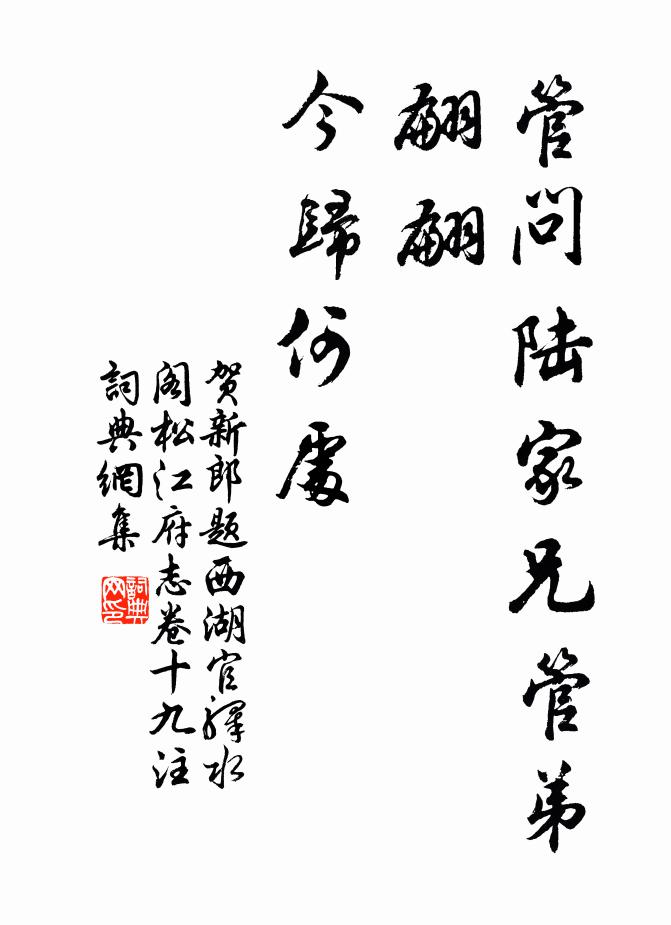 管問陆家兄管弟
翩翩
今歸何處
贺新郎题西湖官驛水
阁松江府志卷十九注
詞典網集
詞典
网印